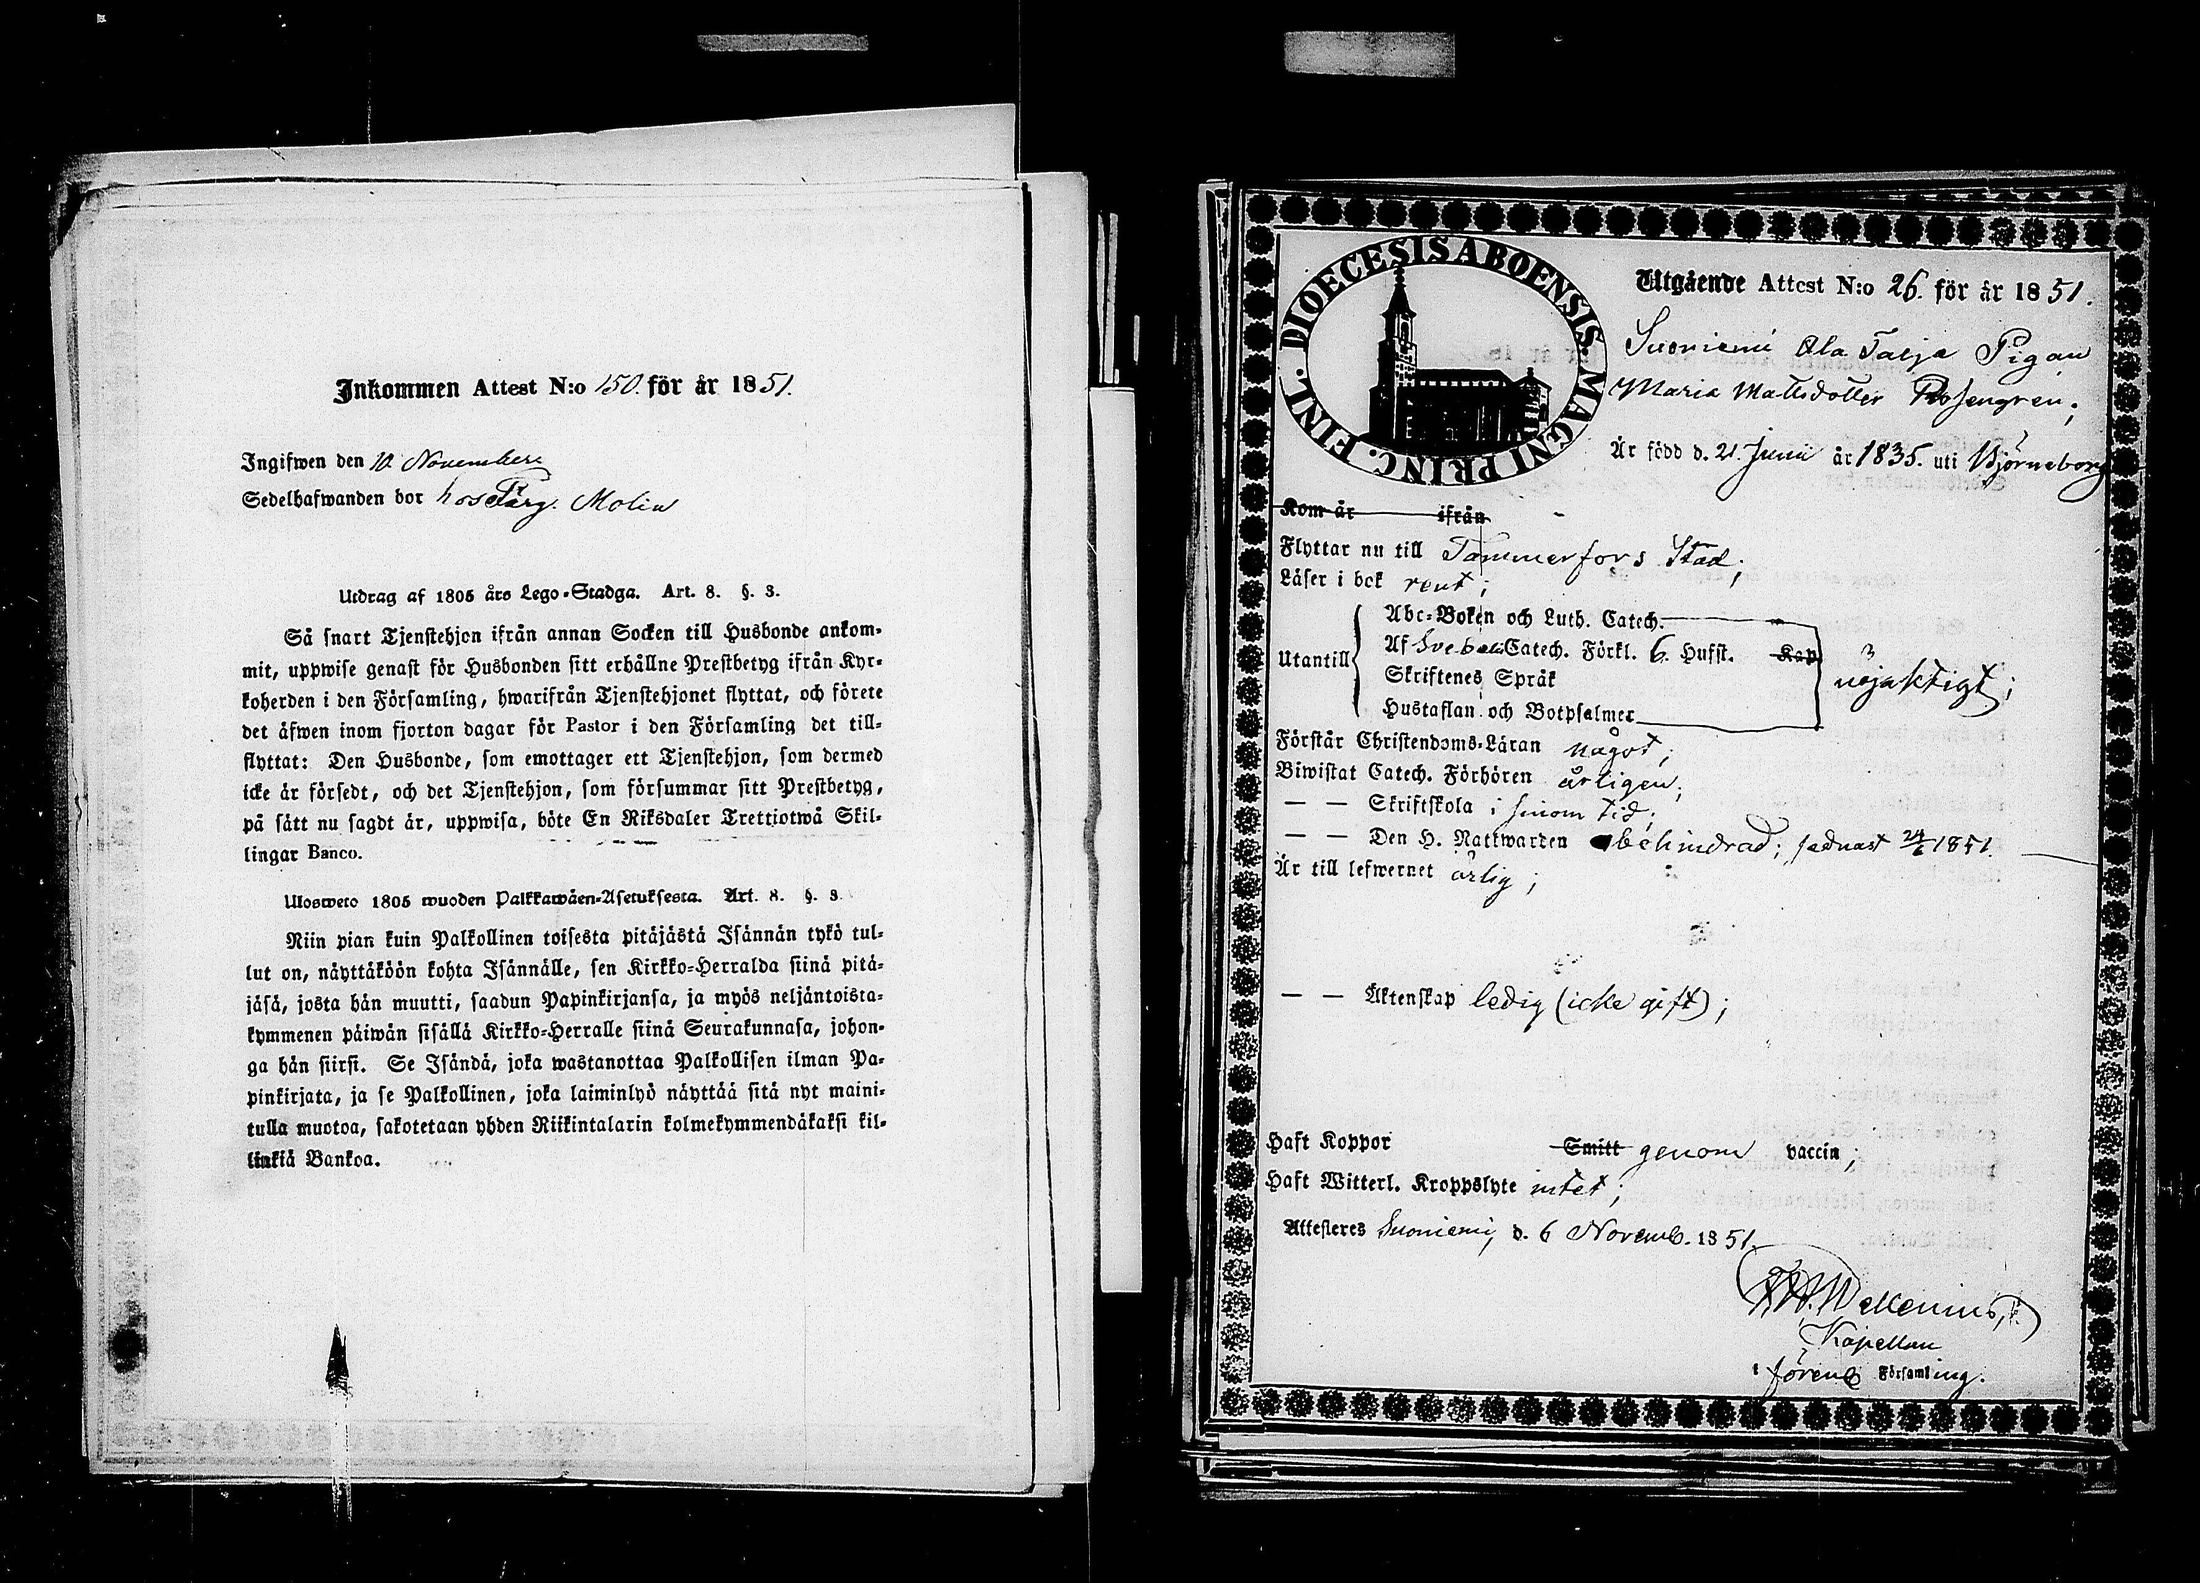 Inkommen Attest N:o 150. för år 1851.
Ingifwen den 10 November
Sedelhafwanden bor hos Färg. Molin
Utdrag af 1805 års Lego-Stadga. Art. 8. §. 3.
Så snart Tjenstehjon ifrån annan Socken till Husbonde ankom-
mit, uppwise genast för Husbonden sitt erhållne Prestbetyg ifrån Kyr-
koherden i den Församling, hwarifrån Tjenstehjonet flyttat, och förete
det äfwen inom fjorton dagar för Pastor i den Församling det till-
flyttat: Den Husbonde, som emottager ett Tjenstehjon, som dermed
icke är försedt, och det Tjenstehjon, som försummar sitt Prestbetyg,
på sätt nu sagdt är, uppwisa, böte En Riksdaler Trettiotwå Skil-
lingar Banco.
Ulosweto 1805 wuoden Palkkawäen-Asetuksesta. Art. 8. §. 3.
Niin pian kuin Palkollinen toisesta pitäjästä Isännän tykö tul-
lut on, näyttäköön kohta Isännälle, sen Kirkko-Herralda siinä pitä-
jäsä, josta hän muutti, saadun Papinkirjansa, ja myös neljäntoista-
kymmenen päiwän sisällä Kirkko-Herralle siinä Seurakunnasa, johon-
ga hän siirsi. Se Isändä, joka wastanottaa Palkollisen ilman Pa-
pinkirjata, ja se Palkollinen, joka laiminlyö näyttää sitä nyt maini-
tulla muotoa, sakotetaan yhden Riikintalarin kolmekymmendäkaksi kil-
linkiä Bankoa.
DIOECESIS ABOENSIS. MAGNI PRINC. FINL.
Utgående Attest N:o 26. för år 1851.
Suoniemi Ala Talja Pigan
Maria Mattsdotter Rosengren;
Är född d. 21. Junii år 1835. uti Björneborg
Kom år ifrån
Flyttar nu till Tammerfors Stad;
Läser i bok rent;
Utantill
Abc-Boken och Luth. Catech.
Af Svebelii Catech. Förkl. 6. Husst. Kap
Skriftenes Språk
Hustaflan och Botpsalmer
nöjaktigt;
Förstår Christendoms-Läran något;
Biwistat Catech. Förhören årligen;
— — Skriftskola i sinom tid;
— — Den H. Nattwarden obehindrad; sednast 24/6 1851.
Är till lefwernet ärlig;
— — Äktenskap ledig (icke gift);
Haft Koppor Smitt genom vaccin;
Haft Witterl. Kroppslyte intet;
Attesteres Suoniemi, d. 6 Novemb. 1851.
Wallenius,
Kapellan
i förend Församling.